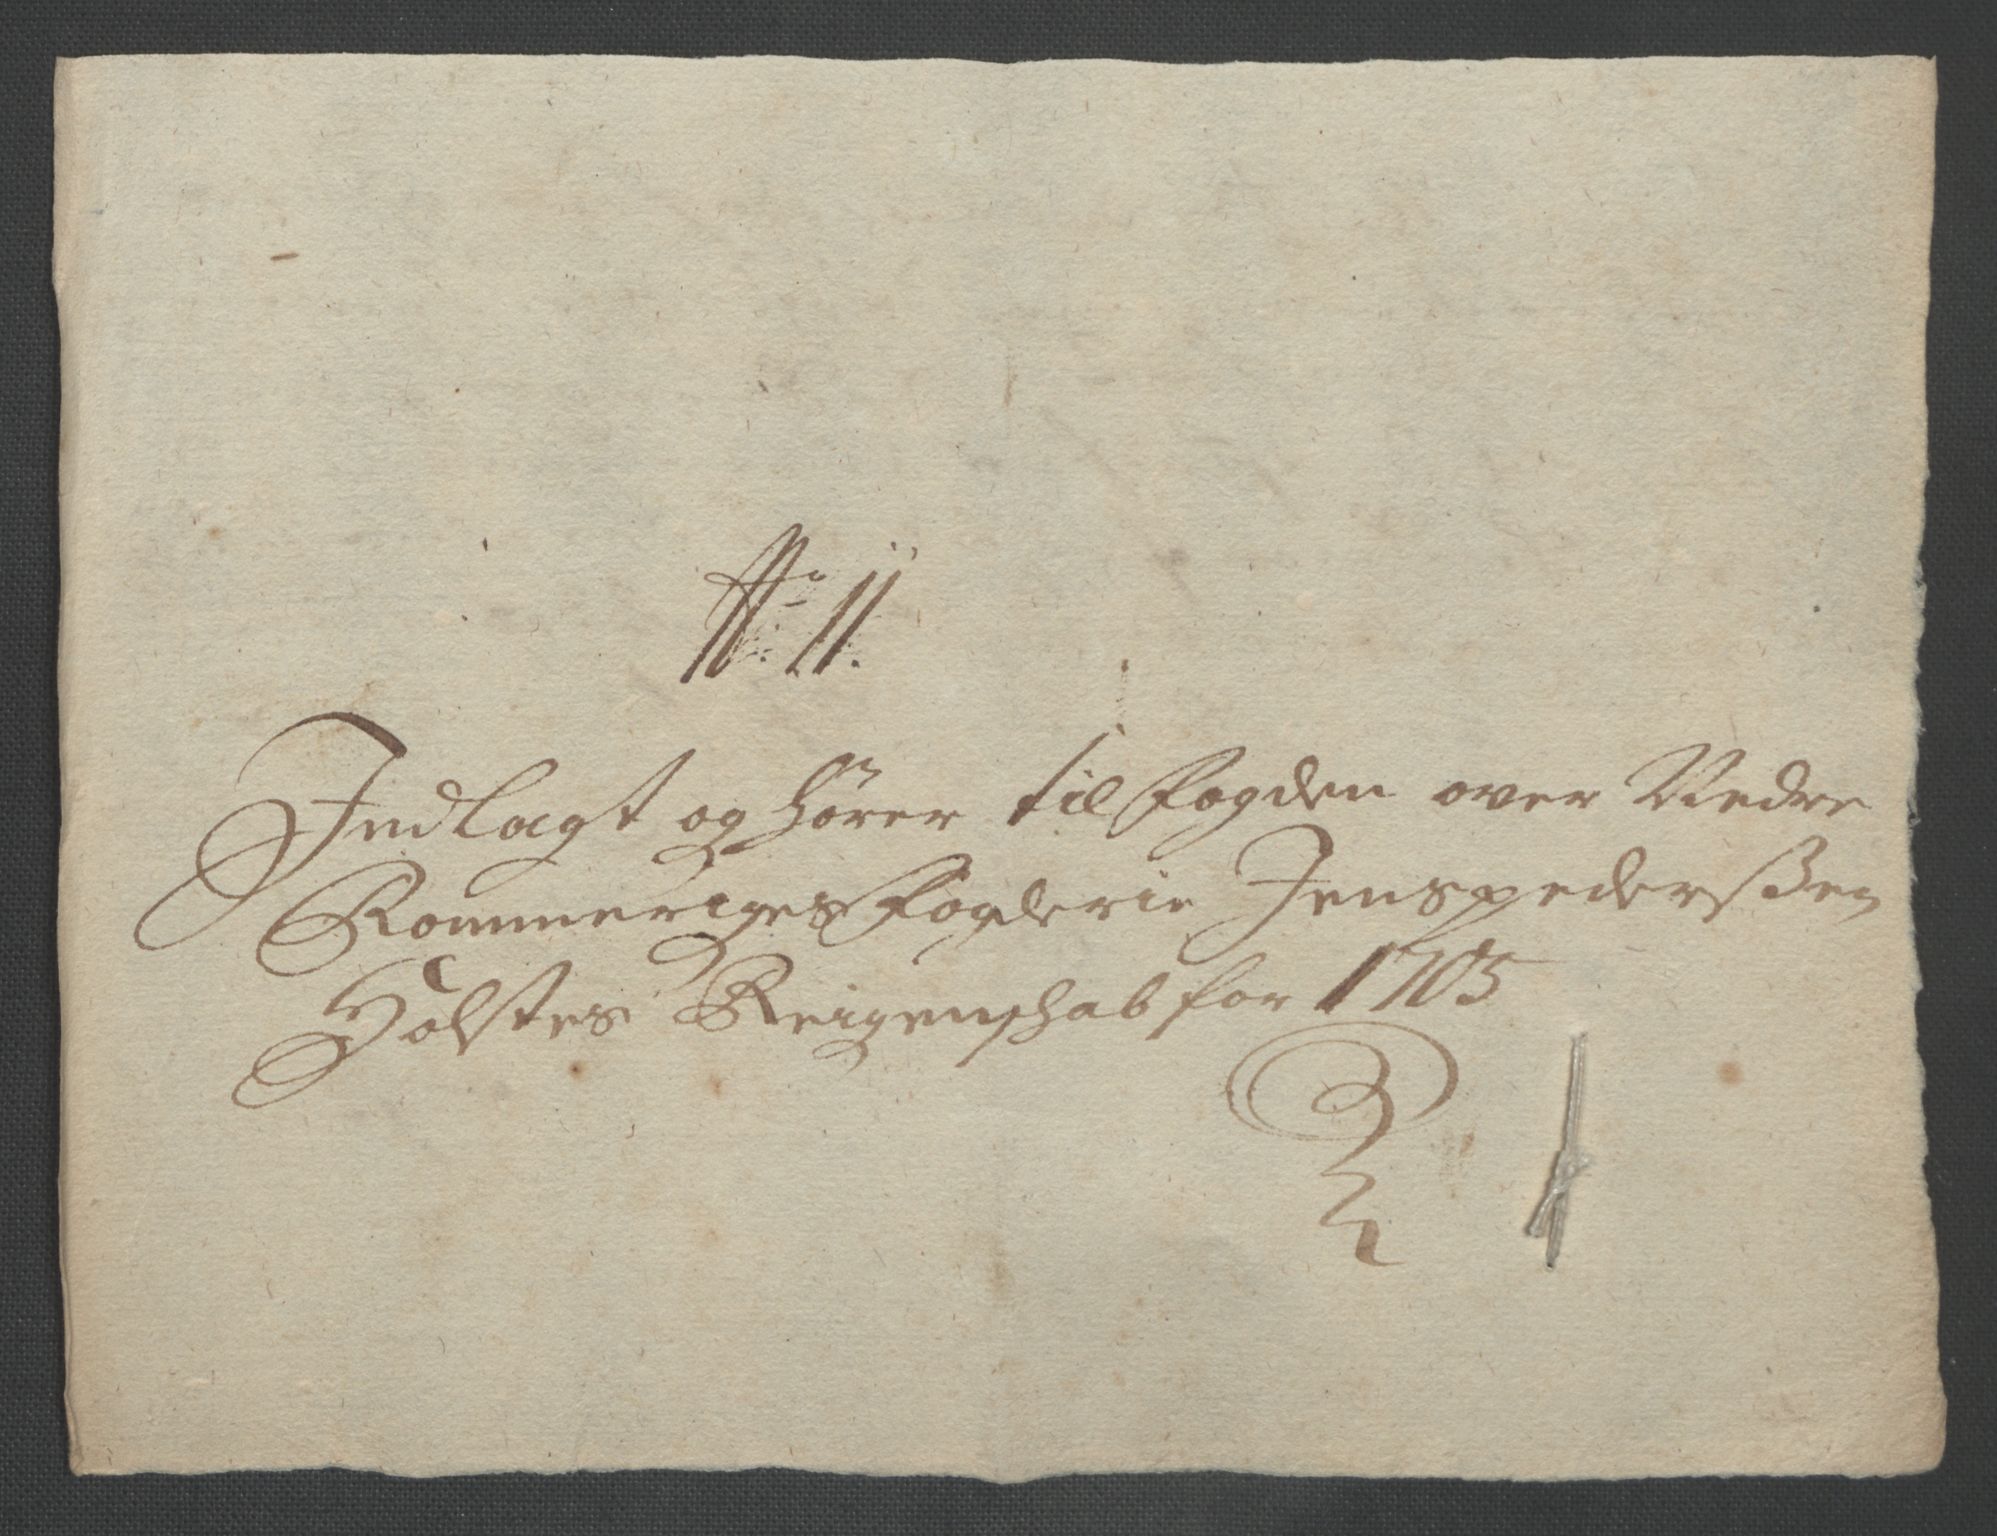 No. 11.
Indlagt og hører til fogden over Nedre
Rommeriges fogderie Jens pederßen
Holstes Reigenskab for 1705